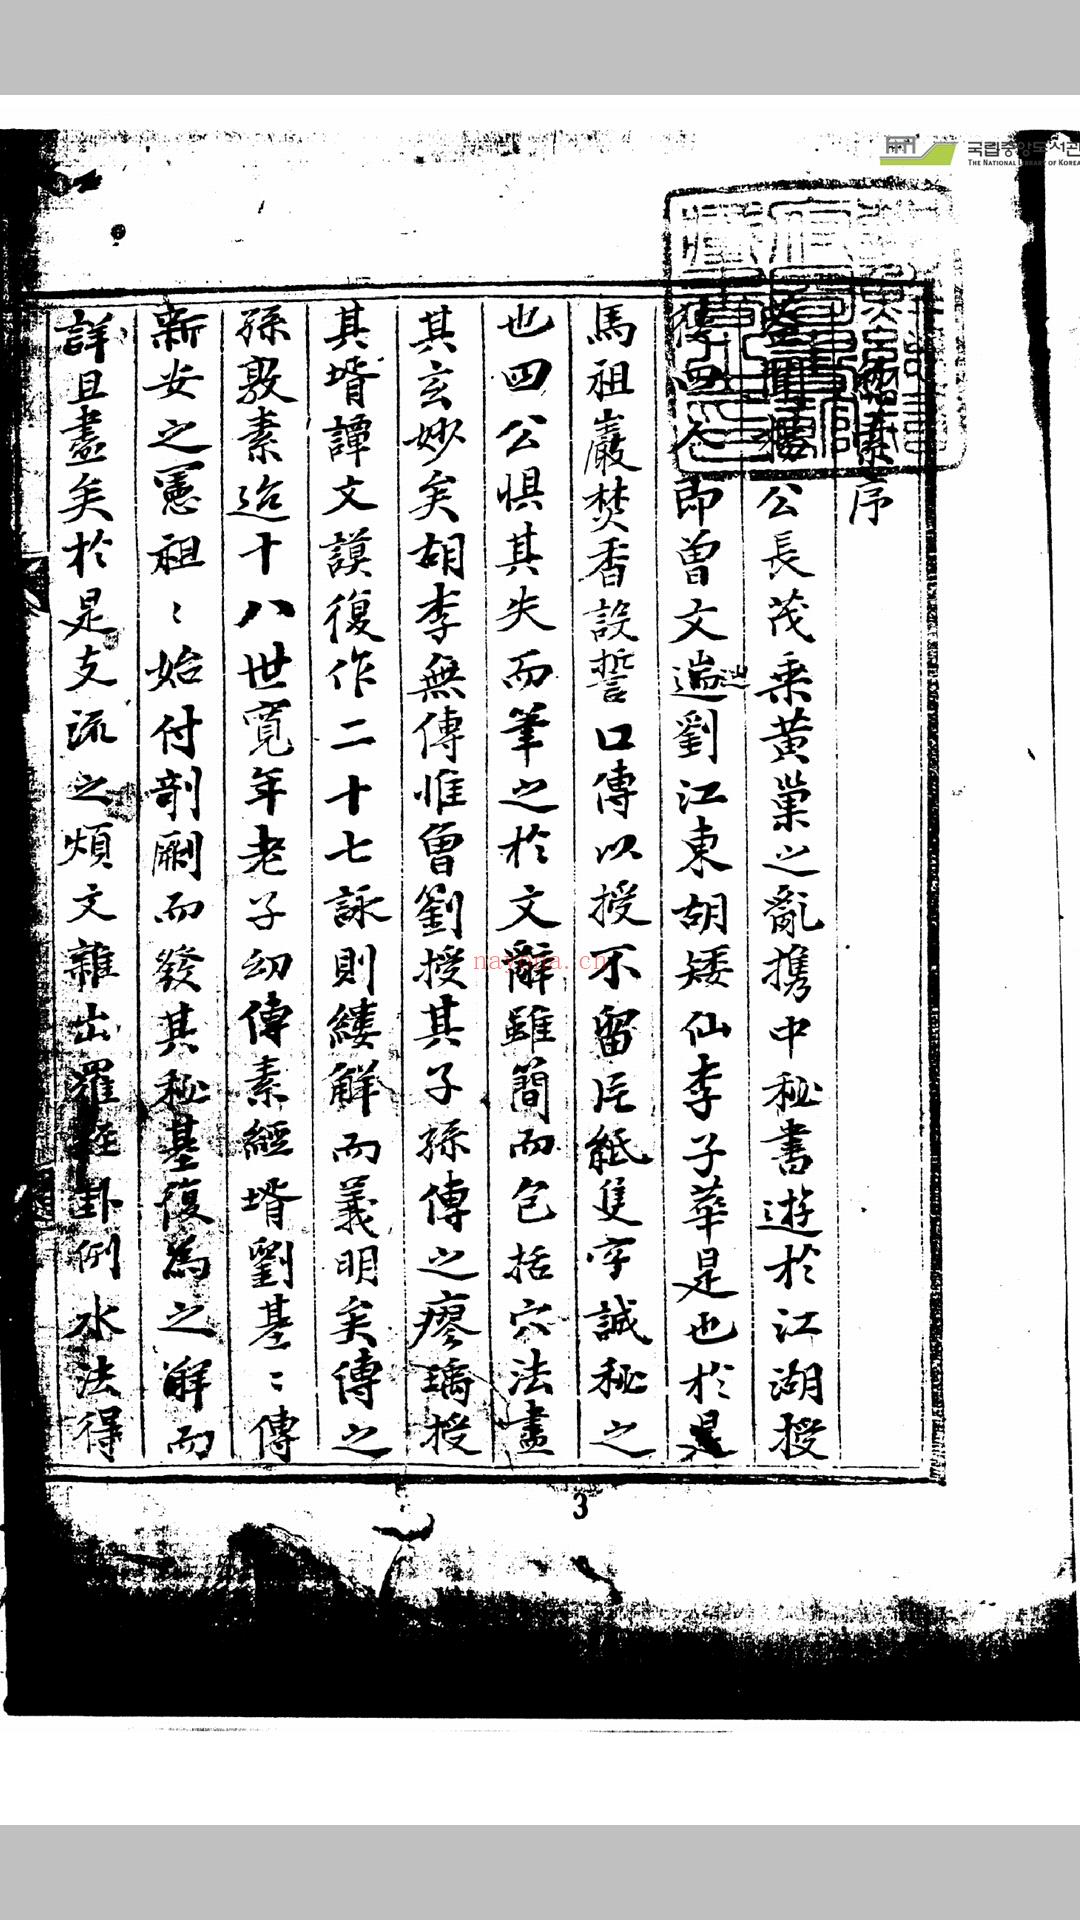 국립중앙도서관
THE NATIONAL LIBRARY OF KOREA
序
公長茂乘黃巢之亂携中秘書遊於江湖授
四人即曾文遄劉江東胡矮仙李子華是也於是
馬祖巖焚香設誓口傳以授不留片紙隻字誠秘之
也四公惧其失而筆之於文辭雖簡而包括穴法盡
其玄妙矣胡李無傳惟曾劉授其子孫傳之廖瑀授
其壻譚文謨復作二十七詠則縷解而義明矣傳之
孫敦素迨十八世寬年老子幼傳素經壻劉基〻傳
新安之憲祖〻始付剞劂而發其秘基復為之解而
詳且盡矣於是支流之煩文雜出羅經卦例水法得
3
nayona.cn